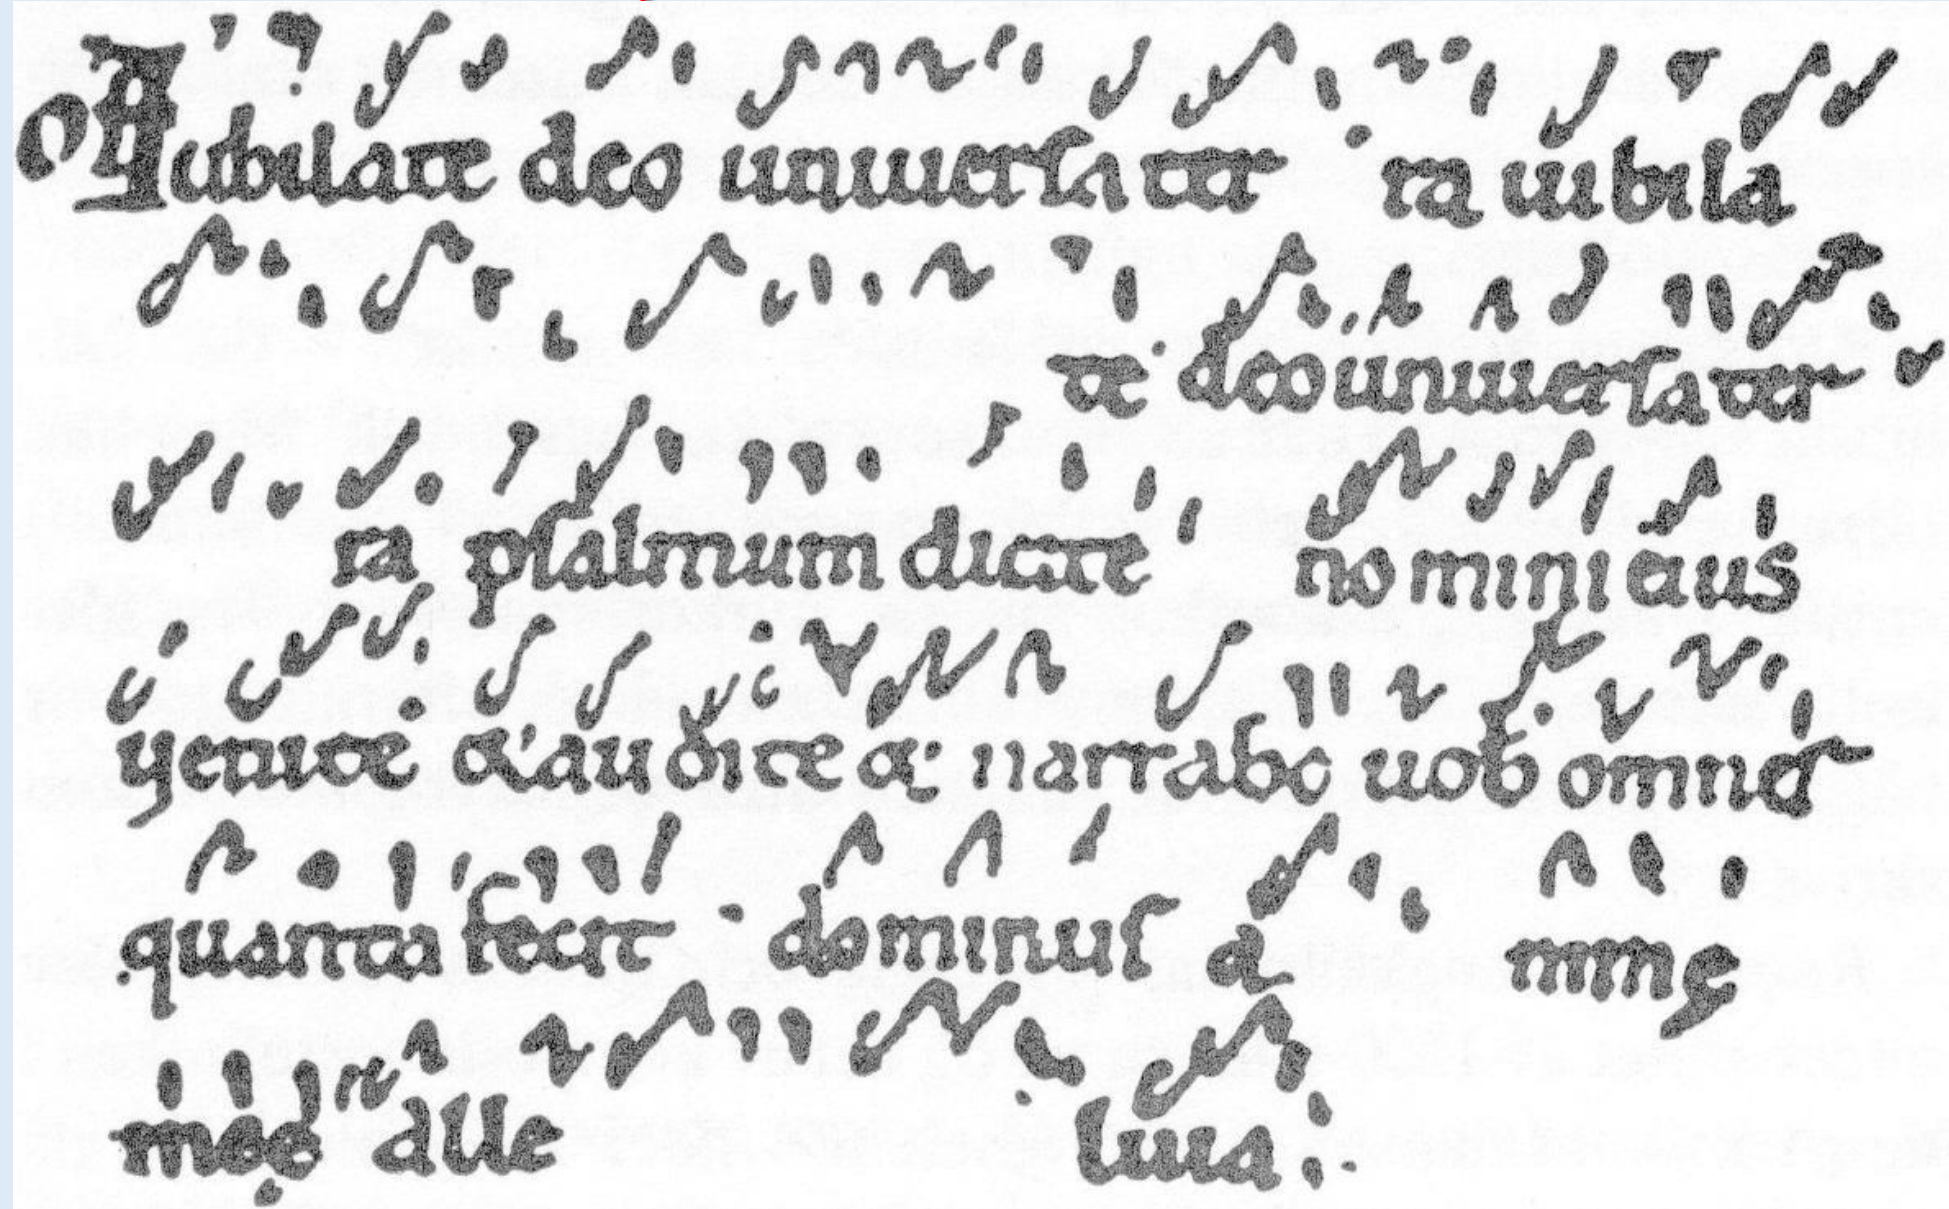 Iubilate deo uniuersa ter ra iubila
te deo uniuersa ter
ra psalmum dicite nomini eius
uenite & audite & narrabo uob omnia
quanta fecit dominus a nime
meę alle luia